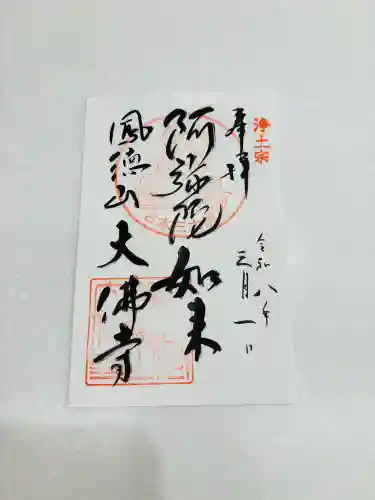 浄土宗
奉拝
令和八年
三月一日
阿弥陀如来
鳳徳山大佛寺